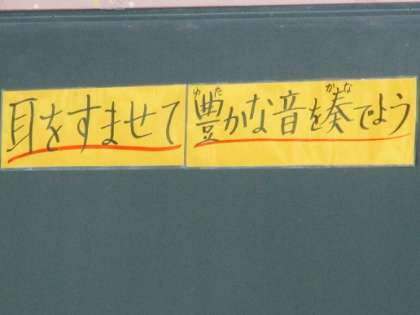 耳をすませて 豊かな音を奏でよう
ゆた かな